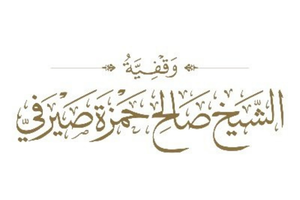 وَقْفِيَّةُ
الشَّيْخ صَالِح حَمْزَة صَيْرَفِي